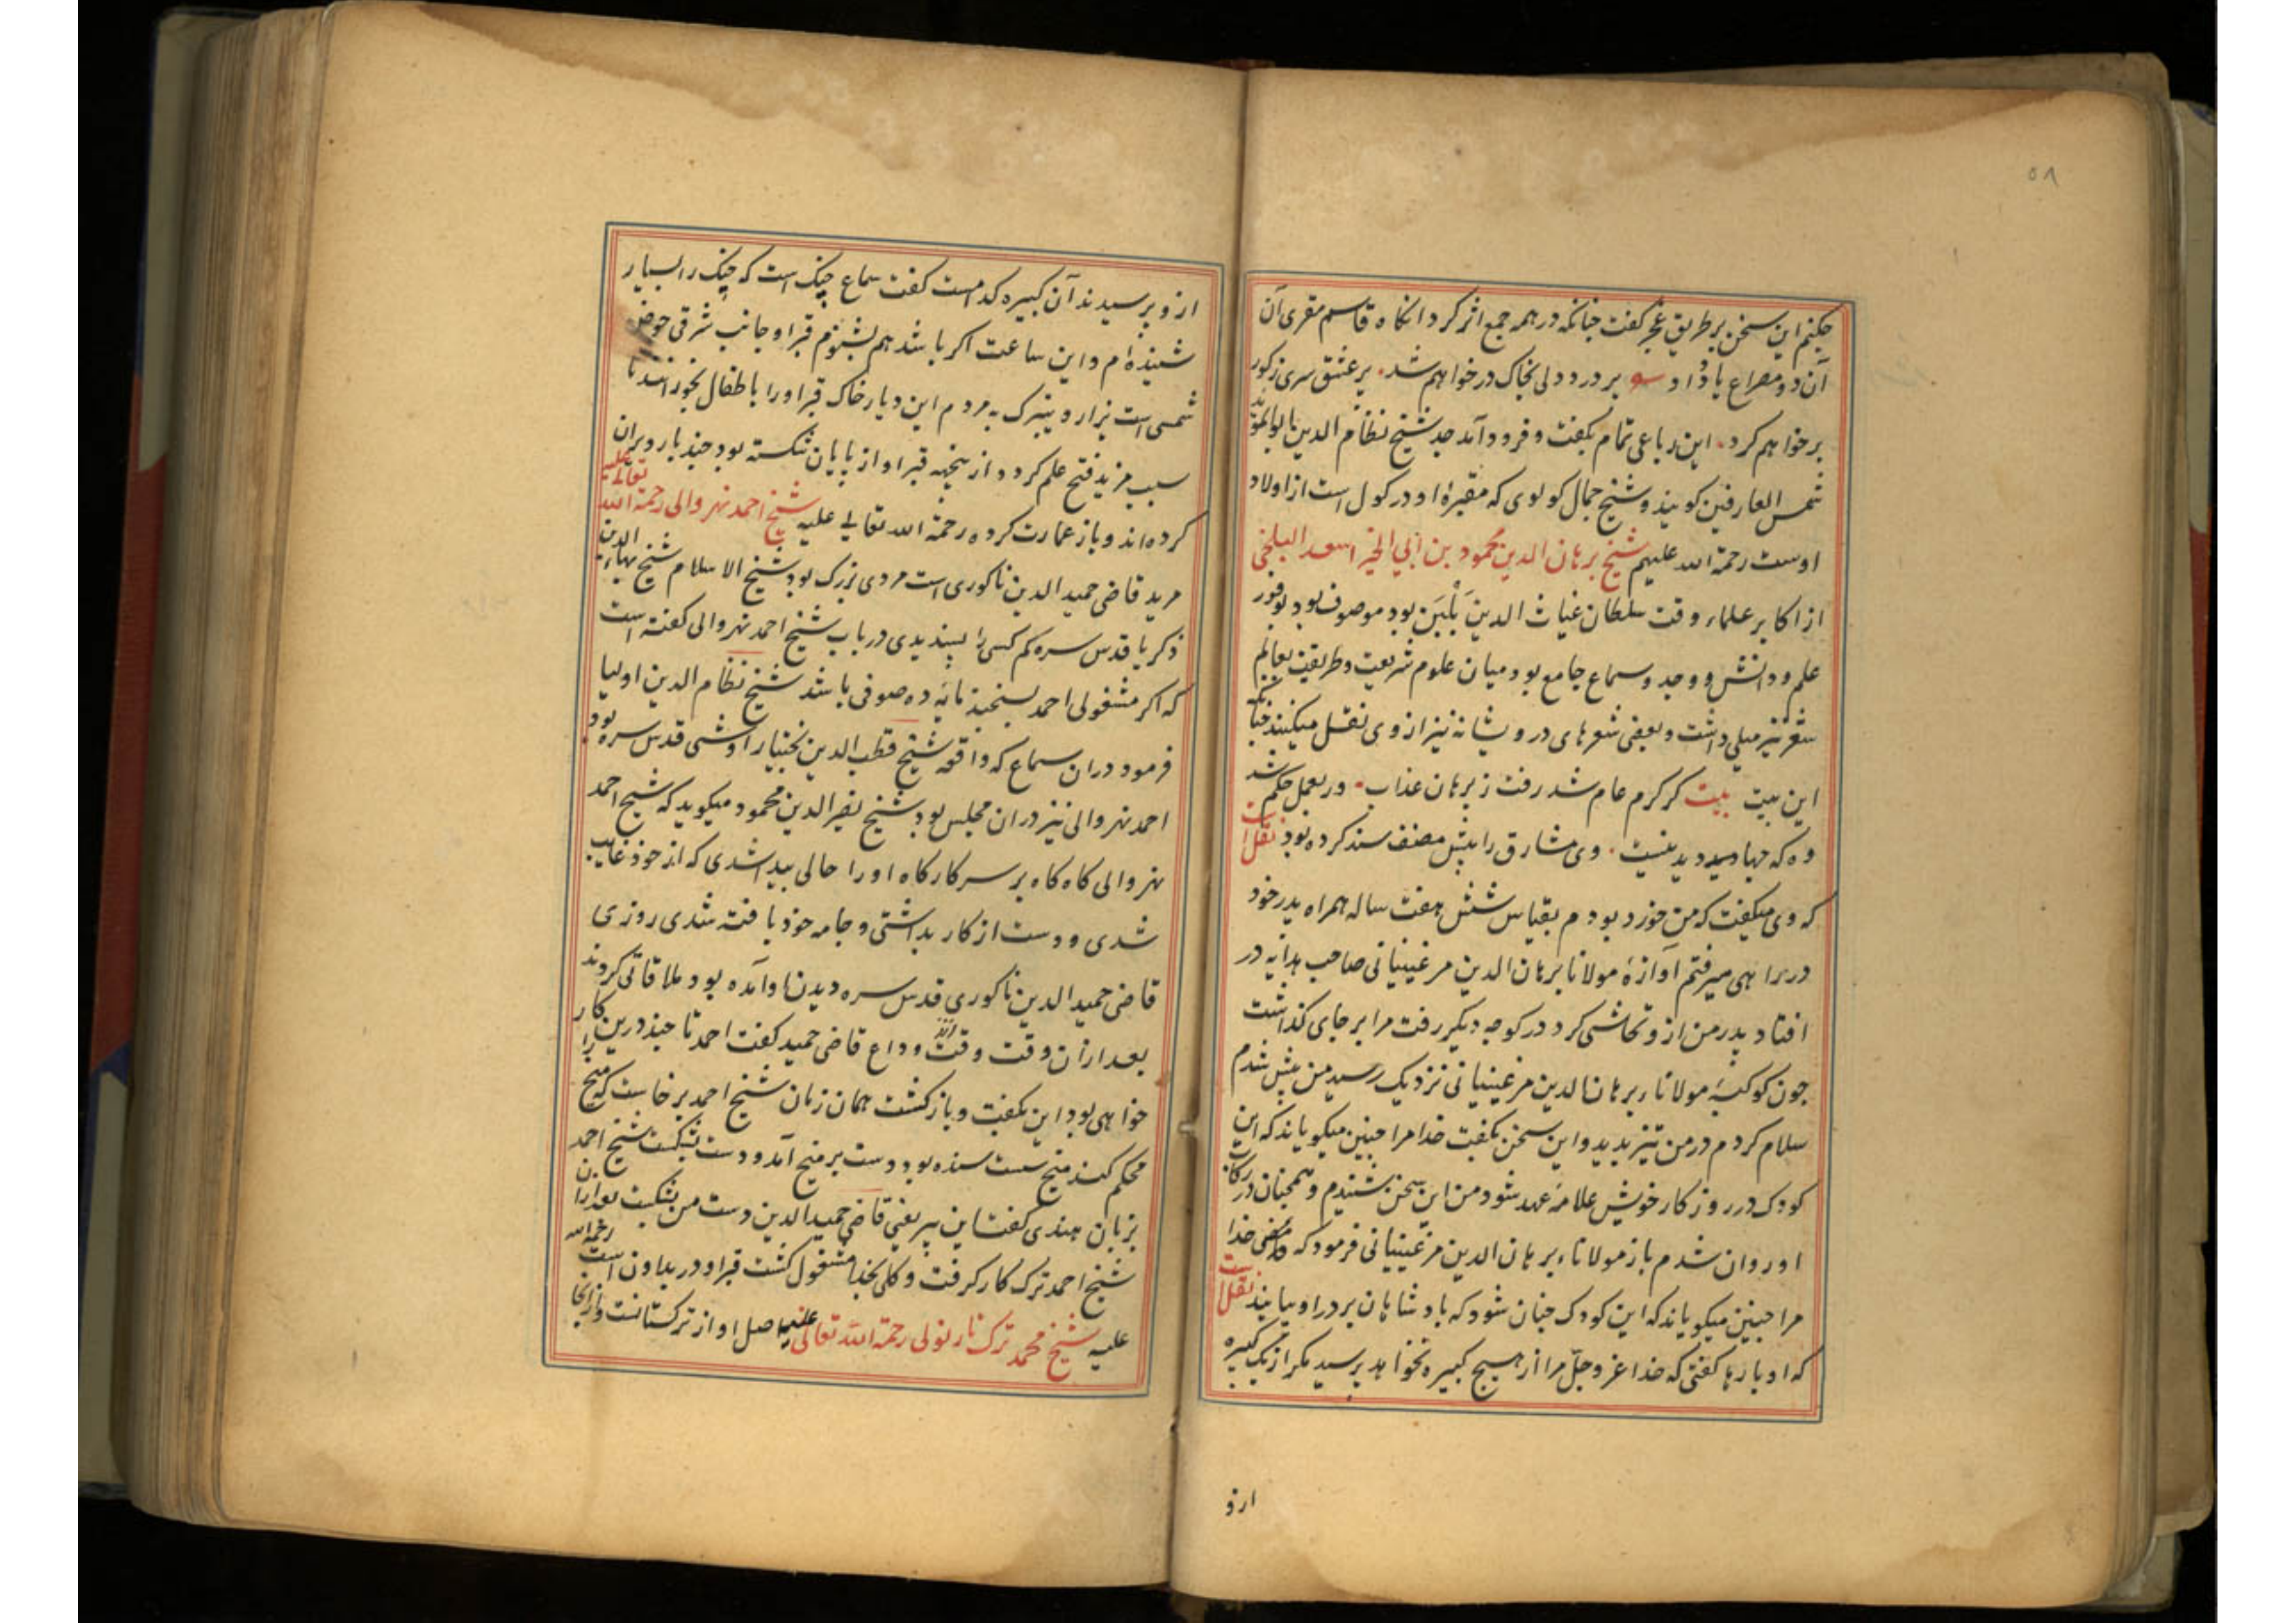 ۵۸
حکیم این سخن بر طریق عجز گفت چنانکه در همه جمع اثر کرد انگاه قاسم مقری آن
آن دو مصراع یاد داد پر درد دلی بخاک در خواهم شد پر عشق سری ز گور
بر خواهم کرد این رباعی تمام بگفت و فرود آمد جد شیخ نظام الدین ابو المؤید
شمس العارفین گویند و شیخ جمال کولوی که مقبرهٔ او در کول است از اولاد
اوست رحمة الله علیهم شیخ برهان الدین محمود بن ابی الخیر اسعد البلخی
از اکابر علماء وقت سلطان غیاث الدین بَلْبَن بود موصوف بود بوفور
علم و دانش و وجد و سماع جامع بود میان علوم شریعت و طریقت بعالم
شعر نیز میلی داشت و بعضی شعرهای درویشانه نیز از وی نقل میکنند چنانکه
این بیت بیت گر کرم عام شد رفت ز برهان عذاب ور بعمل حکم شد
وه که چها دید نیست وی مشارق را پیش مصنف سند کرده بود نقل است
که وی میگفت که من خورد بودم بقیاس شش هفت ساله همراه پدر خود
در راهی میرفتم آوازهٔ مولانا برهان الدین مرغینیانی صاحب هدایه در
افتاد پدر من از و تحاشی کرد در کوچه دیگر رفت مرا بر جای گذاشت
چون کوکبهٔ مولانا برهان الدین مرغینیانی نزدیک رسید من پیش شدم
سلام کردم در من تیز بدید و این سخن بگفت خدا مرا چنین میگویاند که این
کودک در روزگار خویش علامه عهد شود من این سخن بشنیدم و همچنان در رکاب
او روان شدم باز مولانا برهان الدین مرغینیانی فرمود که خدا
مرا چنین میگویاند که این کودک چنان شود که بادشاهان بر در او بیایند نقل است
که او بارها گفتی که خدا عز و جلّ مرا از هیچ کبیره نخواهد پرسید مگر از یک کبیره
ازو
ازو پرسیدند آن کبیره کدامست گفت سماع چنگ است که چنگ را بسیار
شنیده‌ام و این ساعت اگر باشد هم بشنوم قبر او جانب شرقی حوض
شمسی است یزار و یتبرک به مردم این دیار خاک قبر او را باطفال بخورانند تا
سبب مزید فتح علم گردد از پنجه قبر او از پایان شکسته بود چند بار ویران
کرده‌اند و باز عمارت کرده رحمة الله تعالی علیه شیخ احمد نهروالی رحمة الله تعالی علیه
مرید قاضی حمید الدین ناگوری است مردی بزرگ بود شیخ الاسلام شیخ بهاء الدین
ذکریا قدس سره کم کسی را پسندیدی در باب شیخ احمد نهروالی گفته است
که اگر مشغولی احمد بسنجند مایه ده صوفی باشد شیخ نظام الدین اولیا
فرمود دران سماع که واقعه شیخ قطب الدین بختیار اوشی قدس سره بود
احمد نهروالی نیز دران مجلس بود شیخ نصیر الدین محمود میگوید که شیخ احمد
نهروالی گاه گاه بر سر کارگاه او را حالی پیدا شدی که از خود غایب
شدی و دست از کار بداشتی و جامه خود بافته شدی روزی
قاضی حمید الدین ناگوری قدس سره دیدن او آمده بود ملاقاتی کردند
بعد ازان وقت وقت وداع قاضی حمید گفت احمد تا چند درین کار
خواهی بود این بگفت و بازگشت همان زمان شیخ احمد برخاست که میخ را
محکم کند میخ سست شده بود دست بر میخ آمد و دست بشکست شیخ احمد
بزبان هندی گفت این پیر یعنی قاضی حمید الدین دست من بشکست بعد ازان
شیخ احمد ترک کار گرفت و کلی بخدا مشغول گشت قبر او در بداون است رحمة الله
علیه شیخ محمد ترک نارنولی رحمة الله تعالی علیه اصل او از ترکستانست و از انجا